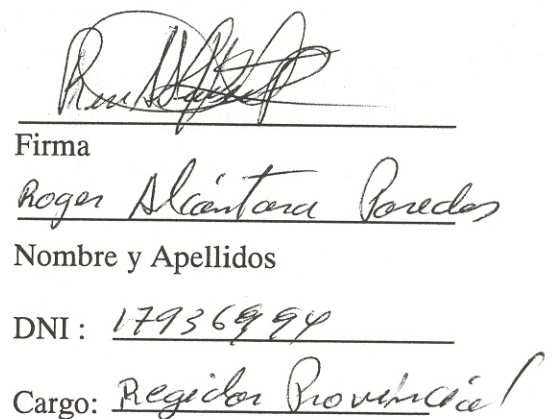 Firma
Roger Alcántara Paredes
Nombre y Apellidos
DNI : 17936994
Cargo: Regidor Provincial